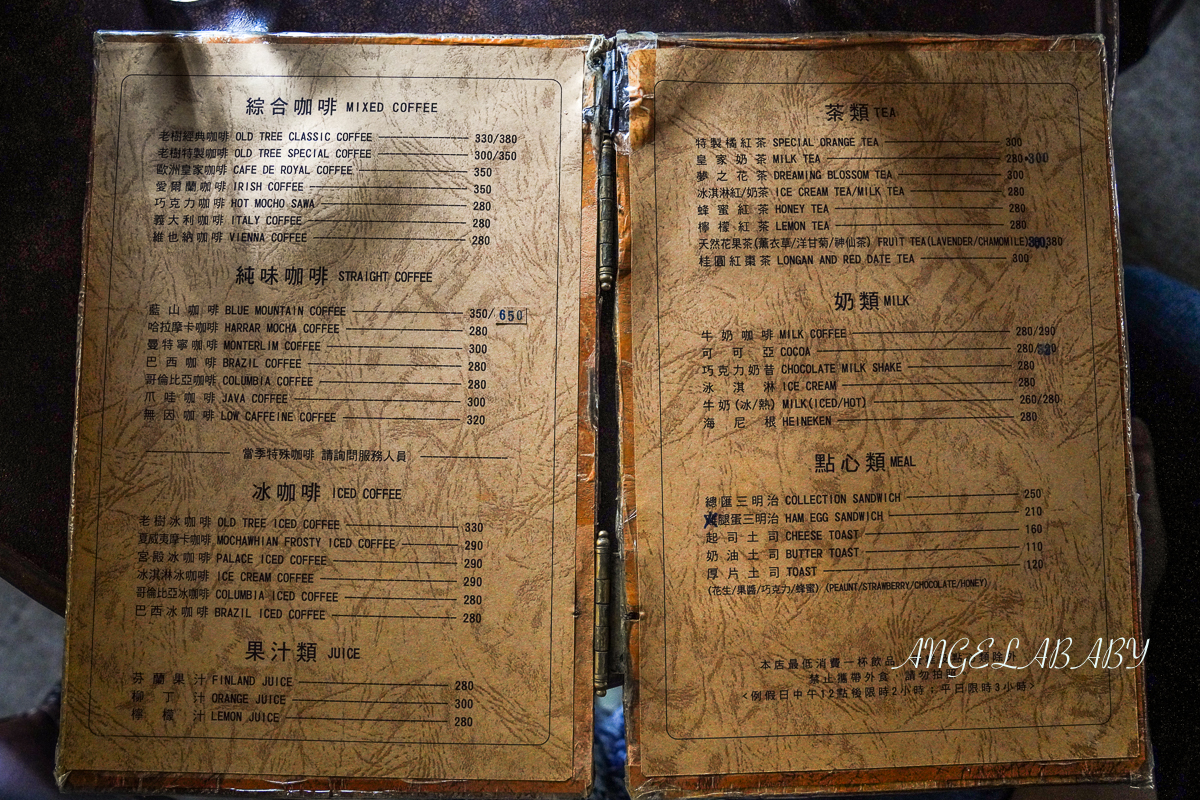 綜合咖啡 MIXED COFFEE
老樹經典咖啡 OLD TREE CLASSIC COFFEE 330/380
老樹特製咖啡 OLD TREE SPECIAL COFFEE 300/350
歐洲皇家咖啡 CAFE DE ROYAL COFFEE 350
愛爾蘭咖啡 IRISH COFFEE 350
巧克力咖啡 HOT MOCHO SAWA 280
義大利咖啡 ITALY COFFEE 280
維也納咖啡 VIENNA COFFEE 280
純味咖啡 STRAIGHT COFFEE
藍山咖啡 BLUE MOUNTAIN COFFEE 350/650
哈拉摩卡咖啡 HARRAR MOCHA COFFEE 280
曼特寧咖啡 MONTERLIM COFFEE 300
巴西咖啡 BRAZIL COFFEE 280
哥倫比亞咖啡 COLUMBIA COFFEE 280
爪哇咖啡 JAVA COFFEE 300
無因咖啡 LOW CAFFEINE COFFEE 320
當季特殊咖啡 請詢問服務人員
冰咖啡 ICED COFFEE
老樹冰咖啡 OLD TREE ICED COFFEE 330
夏威夷摩卡咖啡 MOCHAWHIAN FROSTY ICED COFFEE 290
宮殿冰咖啡 PALACE ICED COFFEE 290
冰淇淋冰咖啡 ICE CREAM COFFEE 290
哥倫比亞冰咖啡 COLUMBIA ICED COFFEE 280
巴西冰咖啡 BRAZIL ICED COFFEE 280
果汁類 JUICE
芬蘭果汁 FINLAND JUICE 280
柳丁汁 ORANGE JUICE 300
檸檬汁 LEMON JUICE 280
茶類 TEA
特製橘紅茶 SPECIAL ORANGE TEA 300
皇家奶茶 MILK TEA 280•300
夢之花茶 DREAMING BLOSSOM TEA 300
冰淇淋紅/奶茶 ICE CREAM TEA/MILK TEA 280
蜂蜜紅茶 HONEY TEA 280
檸檬紅茶 LEMON TEA 280
天然花果茶(薰衣草/洋甘菊/神仙茶) FRUIT TEA(LAVENDER/CHAMOMILE) 380
桂圓紅棗茶 LONGAN AND RED DATE TEA 300
奶類 MILK
牛奶咖啡 MILK COFFEE 280/290
可可亞 COCOA 280/
巧克力奶昔 CHOCOLATE MILK SHAKE 280
冰淇淋 ICE CREAM 280
牛奶(冰/熱) MILK(ICED/HOT) 260/280
海尼根 HEINEKEN 280
點心類 MEAL
總匯三明治 COLLECTION SANDWICH 250
腿蛋三明治 HAM EGG SANDWICH 210
起司土司 CHEESE TOAST 160
奶油土司 BUTTER TOAST 110
厚片土司 TOAST 120
(花生/果醬/巧克力/蜂蜜) (PEAUNT/STRAWBERRY/CHOCOLATE/HONEY)
本店最低消費一杯飲品
禁止攜帶外食，請勿拍
<例假日中午12點後限時2小時；平日限時3小時>
ANGELABABY